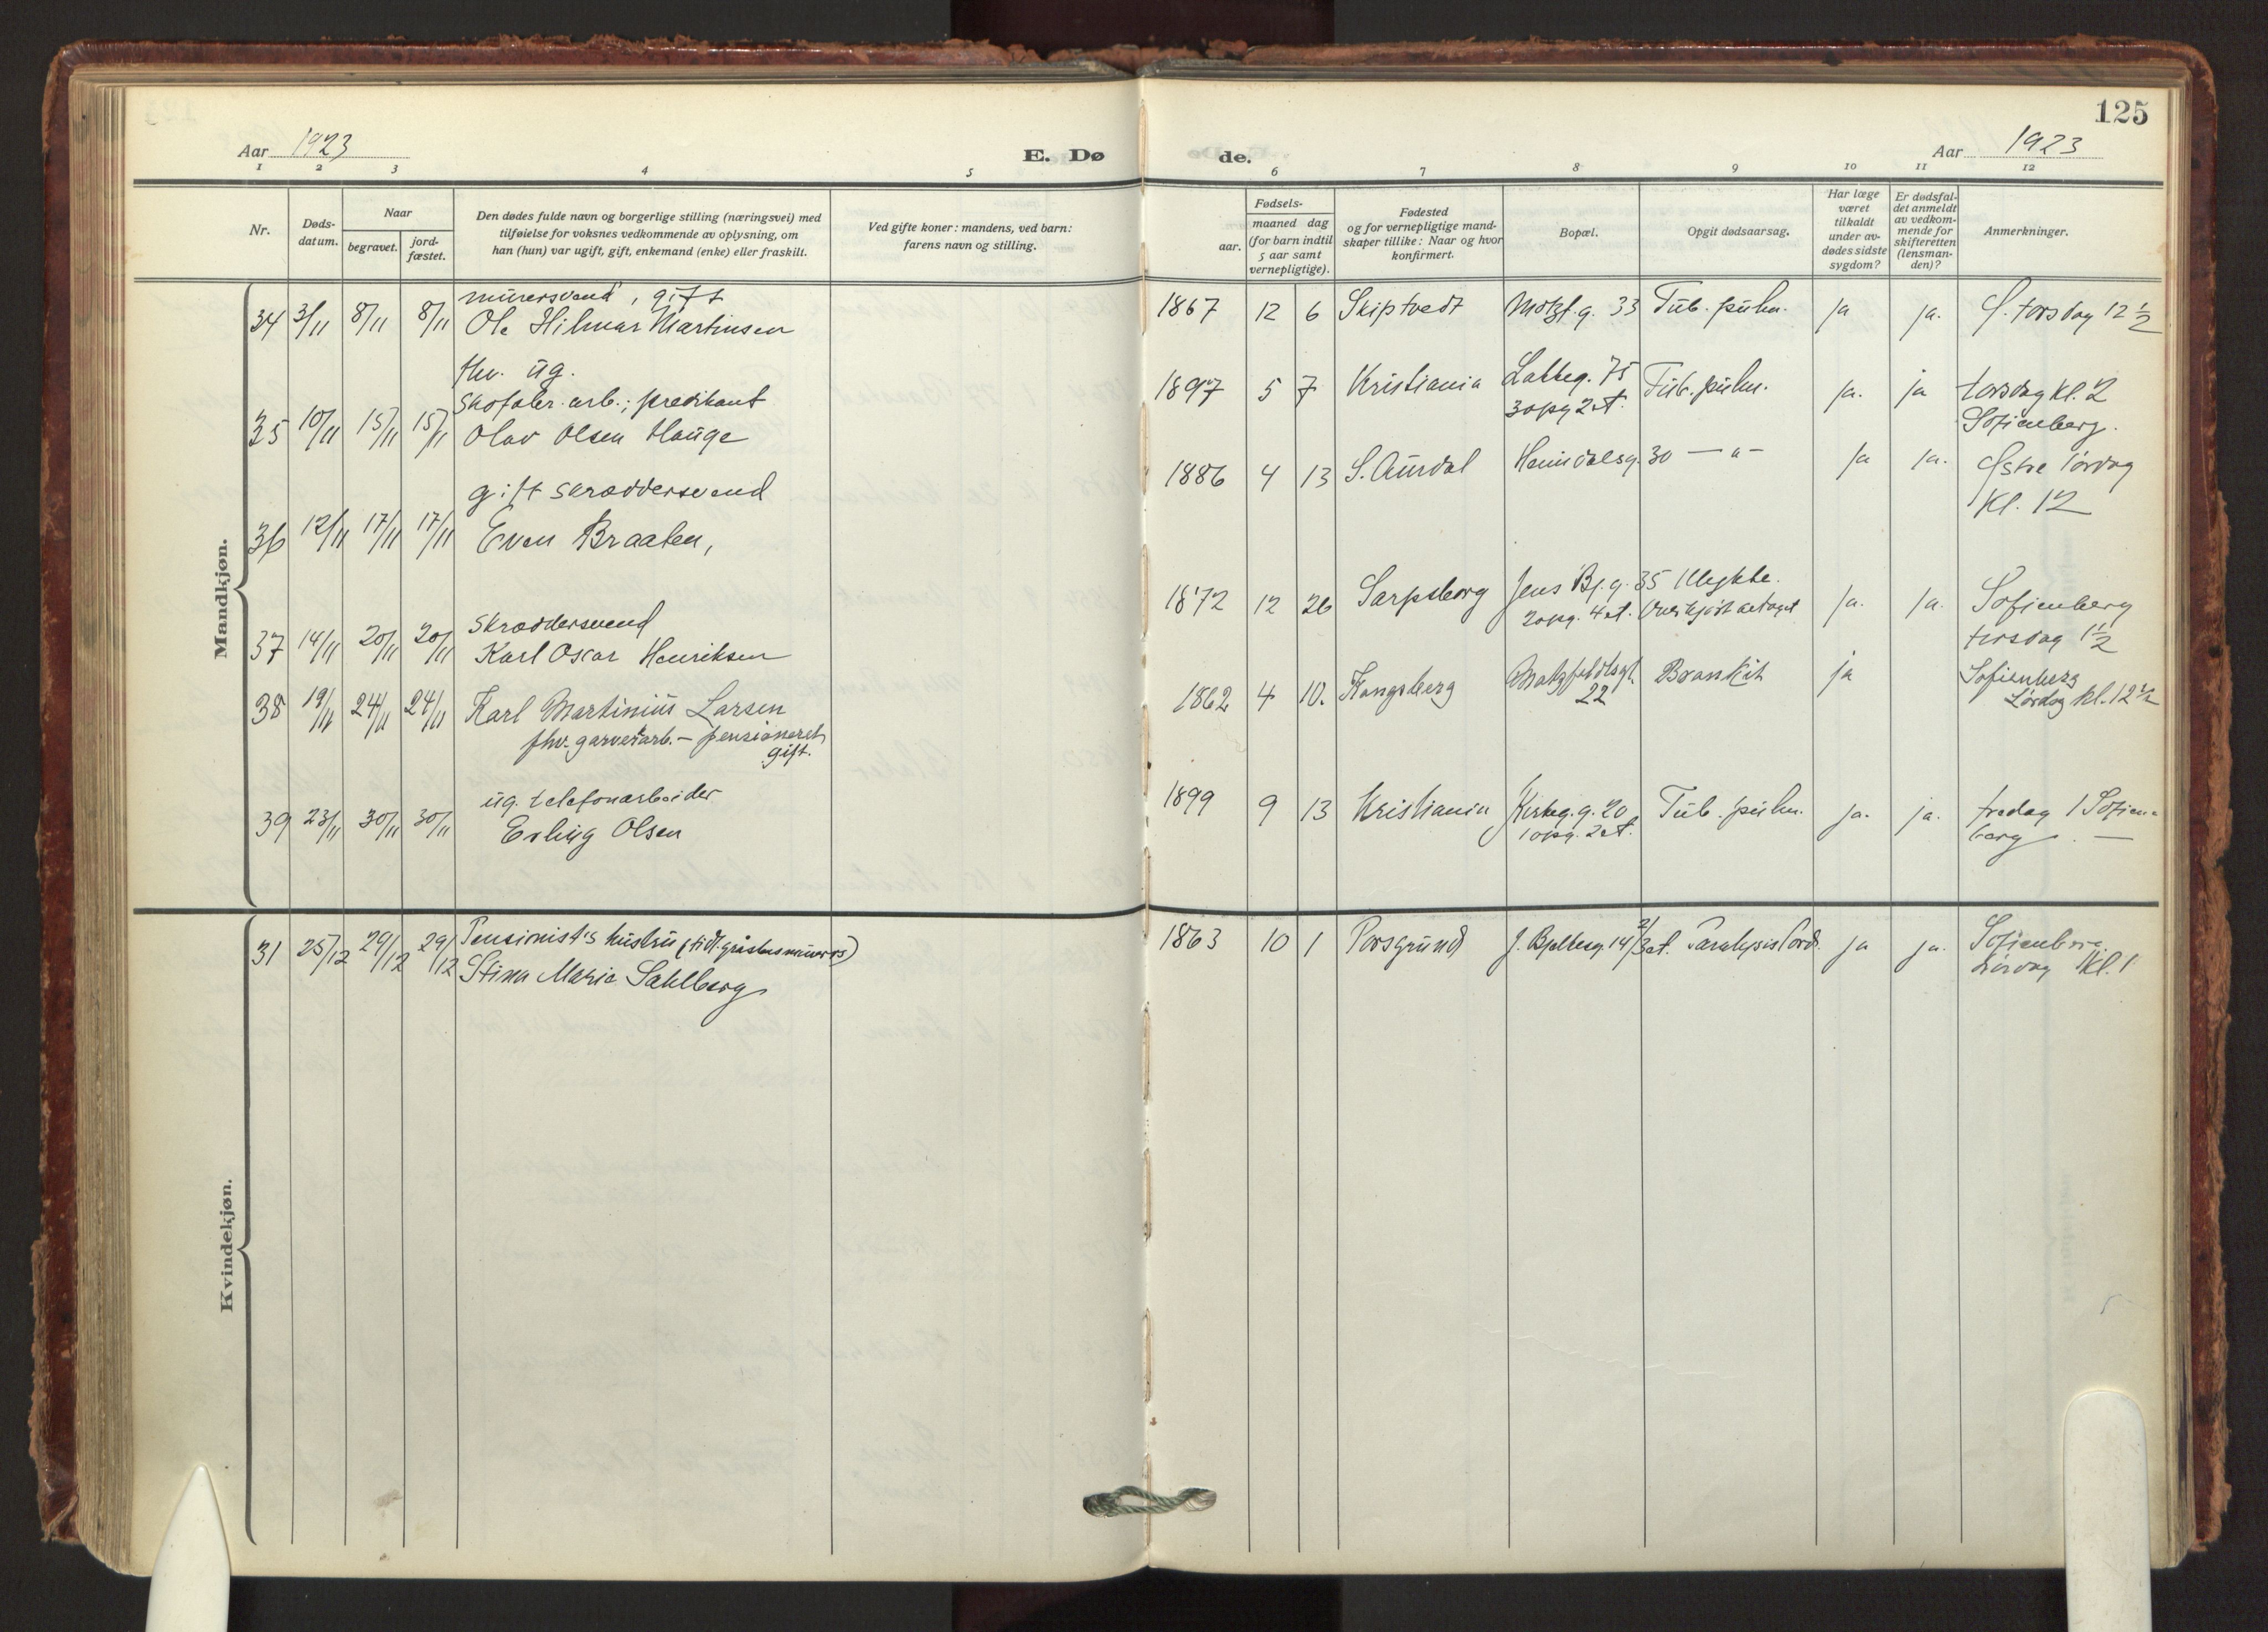 125
Aar 1923 E. Dø
de. Aar 1923
1 2 3 4 5
6 7 8 9 10 11 12
Nr. Døds-datum. Naar begravet. jord-fæstet. Den dødes fulde navn og borgerlige stilling (næringsvei) med tilføielse for voksnes vedkommende av oplysning, om han (hun) var ugift, gift, enkemand (enke) eller fraskilt. Ved gifte koner: mandens, ved barn: farens navn og stilling.
Fødsels- aar. maaned dag (for barn indtil 5 aar samt vernepligtige). Fødested og for vernepligtige mand-skaper tillike: Naar og hvor konfirmert. Bopæl. Opgit dødsaarsag. Har læge været tilkaldt under av-dødes sidste sygdom? Er dødsfal-det anmeldt av vedkom-mende for skifteretten (lensman-den)? Anmerkninger.
Mandkjøn.
murersvend, gift
34 3/11 8/11 8/11 Ole Hilmar Martinsen
1867 12 6 Skiptvedt Motzf.g. 33 Tub. pulm. ja ja. Ø. torsdag 12 1/2
fhv. ug.
skofabr. arb.; predikant
35 10/11 15/11 15/11 Olav Olsen Hauge
1897 5 7 Kristiania 75 Tub. pulm. ja. ja torsdag kl. 2
3 opg 2 et. Sofienberg.
gift skræddersvend
36 12/11 17/11 17/11 Even Braaten,
1886 4 13 S. Aurdal Heimdalsg. 30 — " — ja ja. Østre lørdag
kl. 12
skræddersvend
37 14/11 20/11 20/11 Karl Oscar Henriksen
1872 12 26 Sarpsborg Jens Bj. g. 35 Ulykke. ja. ja. Sofienberg
2 opg. 4 et. Overkjørt av toget tirsdag 1 1/2
38 19/11 24/11 24/11 Karl Martinius Larsen
fhv. garverarb. – pensioneret
gift.
1862 4 10. Kongsberg Motzfeldtsgt. Bronkit ja Sofienberg
22 Lørdag kl. 12 1/2
ug. telefonarbeider
39 23/11 30/11 30/11 Erling Olsen
1899 9 13 Kristiania Kirkeg. g. 20 Tub. pulm. ja. ja. fredag 1 Sofien-
1 opg. 2 et. berg. —
Kvindekjøn.
31 25/12 29/12 29/12 Pensionist's hustru (tidl. gråstensmurers)
Stina Marie Sahlberg
1863 10 1 Porsgrund J. Bjelkesg. 14 3 et. Paralysis cord. ja ja. Sofienberg
Lørdag kl. 1